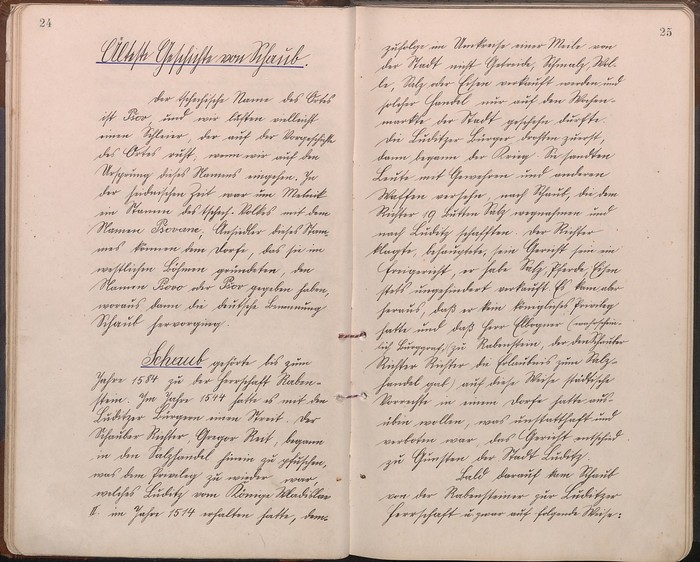 24
Älteste Geschichte von Schaub.
der tschechische Name des Ortes
ist Psov, und wir lüften vielleicht
einen Schleier, der auf der Vorgeschichte
des Ortes ruht, wenn wir auf den
Ursprung dieses Namens eingehen. In
der heidnischen Zeit war um Melnik
ein Stamm des tschech. Volkes mit dem
Namen Psovane, Ansiedler dieses Stam-
mes können dem Dorfe, das sie im
westlichen Böhmen gründeten, den
Namen Psovo oder Psov gegeben haben,
woraus dann die deutsche Benennung
Schaub hervorging.
Schaub gehörte bis zum
Jahre 1584 zu der Herrschaft Raben-
stein. Im Jahre 1544 hatte es mit den
Luditzer Bürgern einen Streit. Der
Schauber Richter, Gregor Reit, begann
in den Salzhandel hinein zu pfuschen,
was dem Privileg zu wieder war,
welches Luditz vom Könige Wladislav
II. im Jahre 1514 erhalten hatte, dem-
25
zufolge im Umkreise einer Meile von
der Stadt nicht Getreide, Schmalz, Wol-
le, Salz oder Eisen verkauft werden und
solcher Handel nur auf den Wochen-
markte der Stadt geschehen durfte.
Die Luditzer Bürger drohten zuerst,
dann begann der Krieg. Sie sandten
Leute mit Gewehren und anderen
Waffen versehen, nach Schaub, die dem
Richter 19 Bütten Salz wegnahmen und
nach Luditz schafften. Der Richter
klagte, behauptete, sein Gericht sei ein
Freigericht, er habe Salz, Pferde, Eisen
stets ungehindert verkauft. Es kam aber
heraus, daß er kein königliches Privileg
hatte und daß Herr Elbogner (wahrschein-
lich Burggraf) zu Rabenstein, der den Schauber
Richter Richter die Erlaubnis zum Salz-
handel gab) auf diese Weise städtische
Vorrechte in einem Dorfe hatte aus-
üben wollen, was unstatthaft und
verboten war, das Gericht entschied
zu Gunsten der Stadt Luditz.
Bald darauf kam Schaub
von der Rabensteiner zur Luditzer
Herrschaft u. zwar auf folgende Weise: